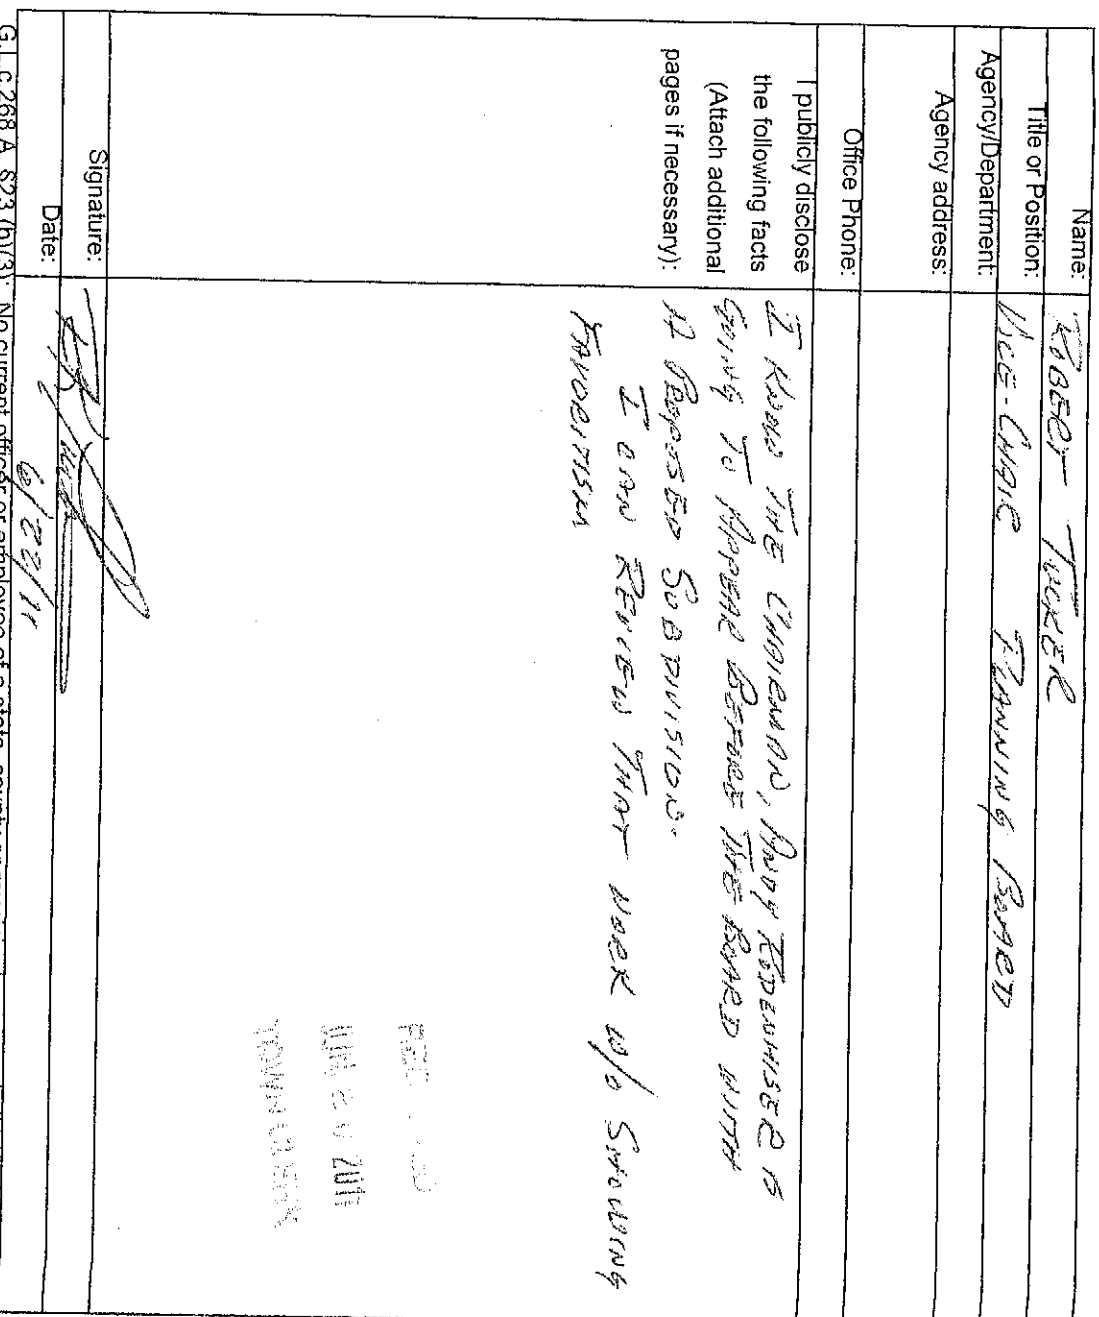 Name: ROBERT TUCKER
Title or Position: VICE-CHAIR PLANNING BOARD
Agency/Department:
Agency address:
Office Phone:
I publicly disclose
the following facts
(Attach additional
pages if necessary):
I KNOW THE CHAIRMAN, ANDY RODENHISER IS
GOING TO APPEAR BEFORE THE BOARD WITH
A PROPOSED SUBDIVISION.
I CAN REVIEW THAT WORK W/O SHOWING
FAVORITISM
TOWN CLERK
Signature:
Date: 6/22/11
G.L. c.268 A, §23 (b)(3): No current officer or employee of a state, county